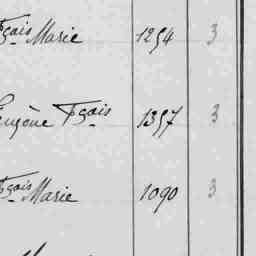 Fçois Marie 1254 3
Eugène Fçois 1357 3
Fçois Marie 1090 3